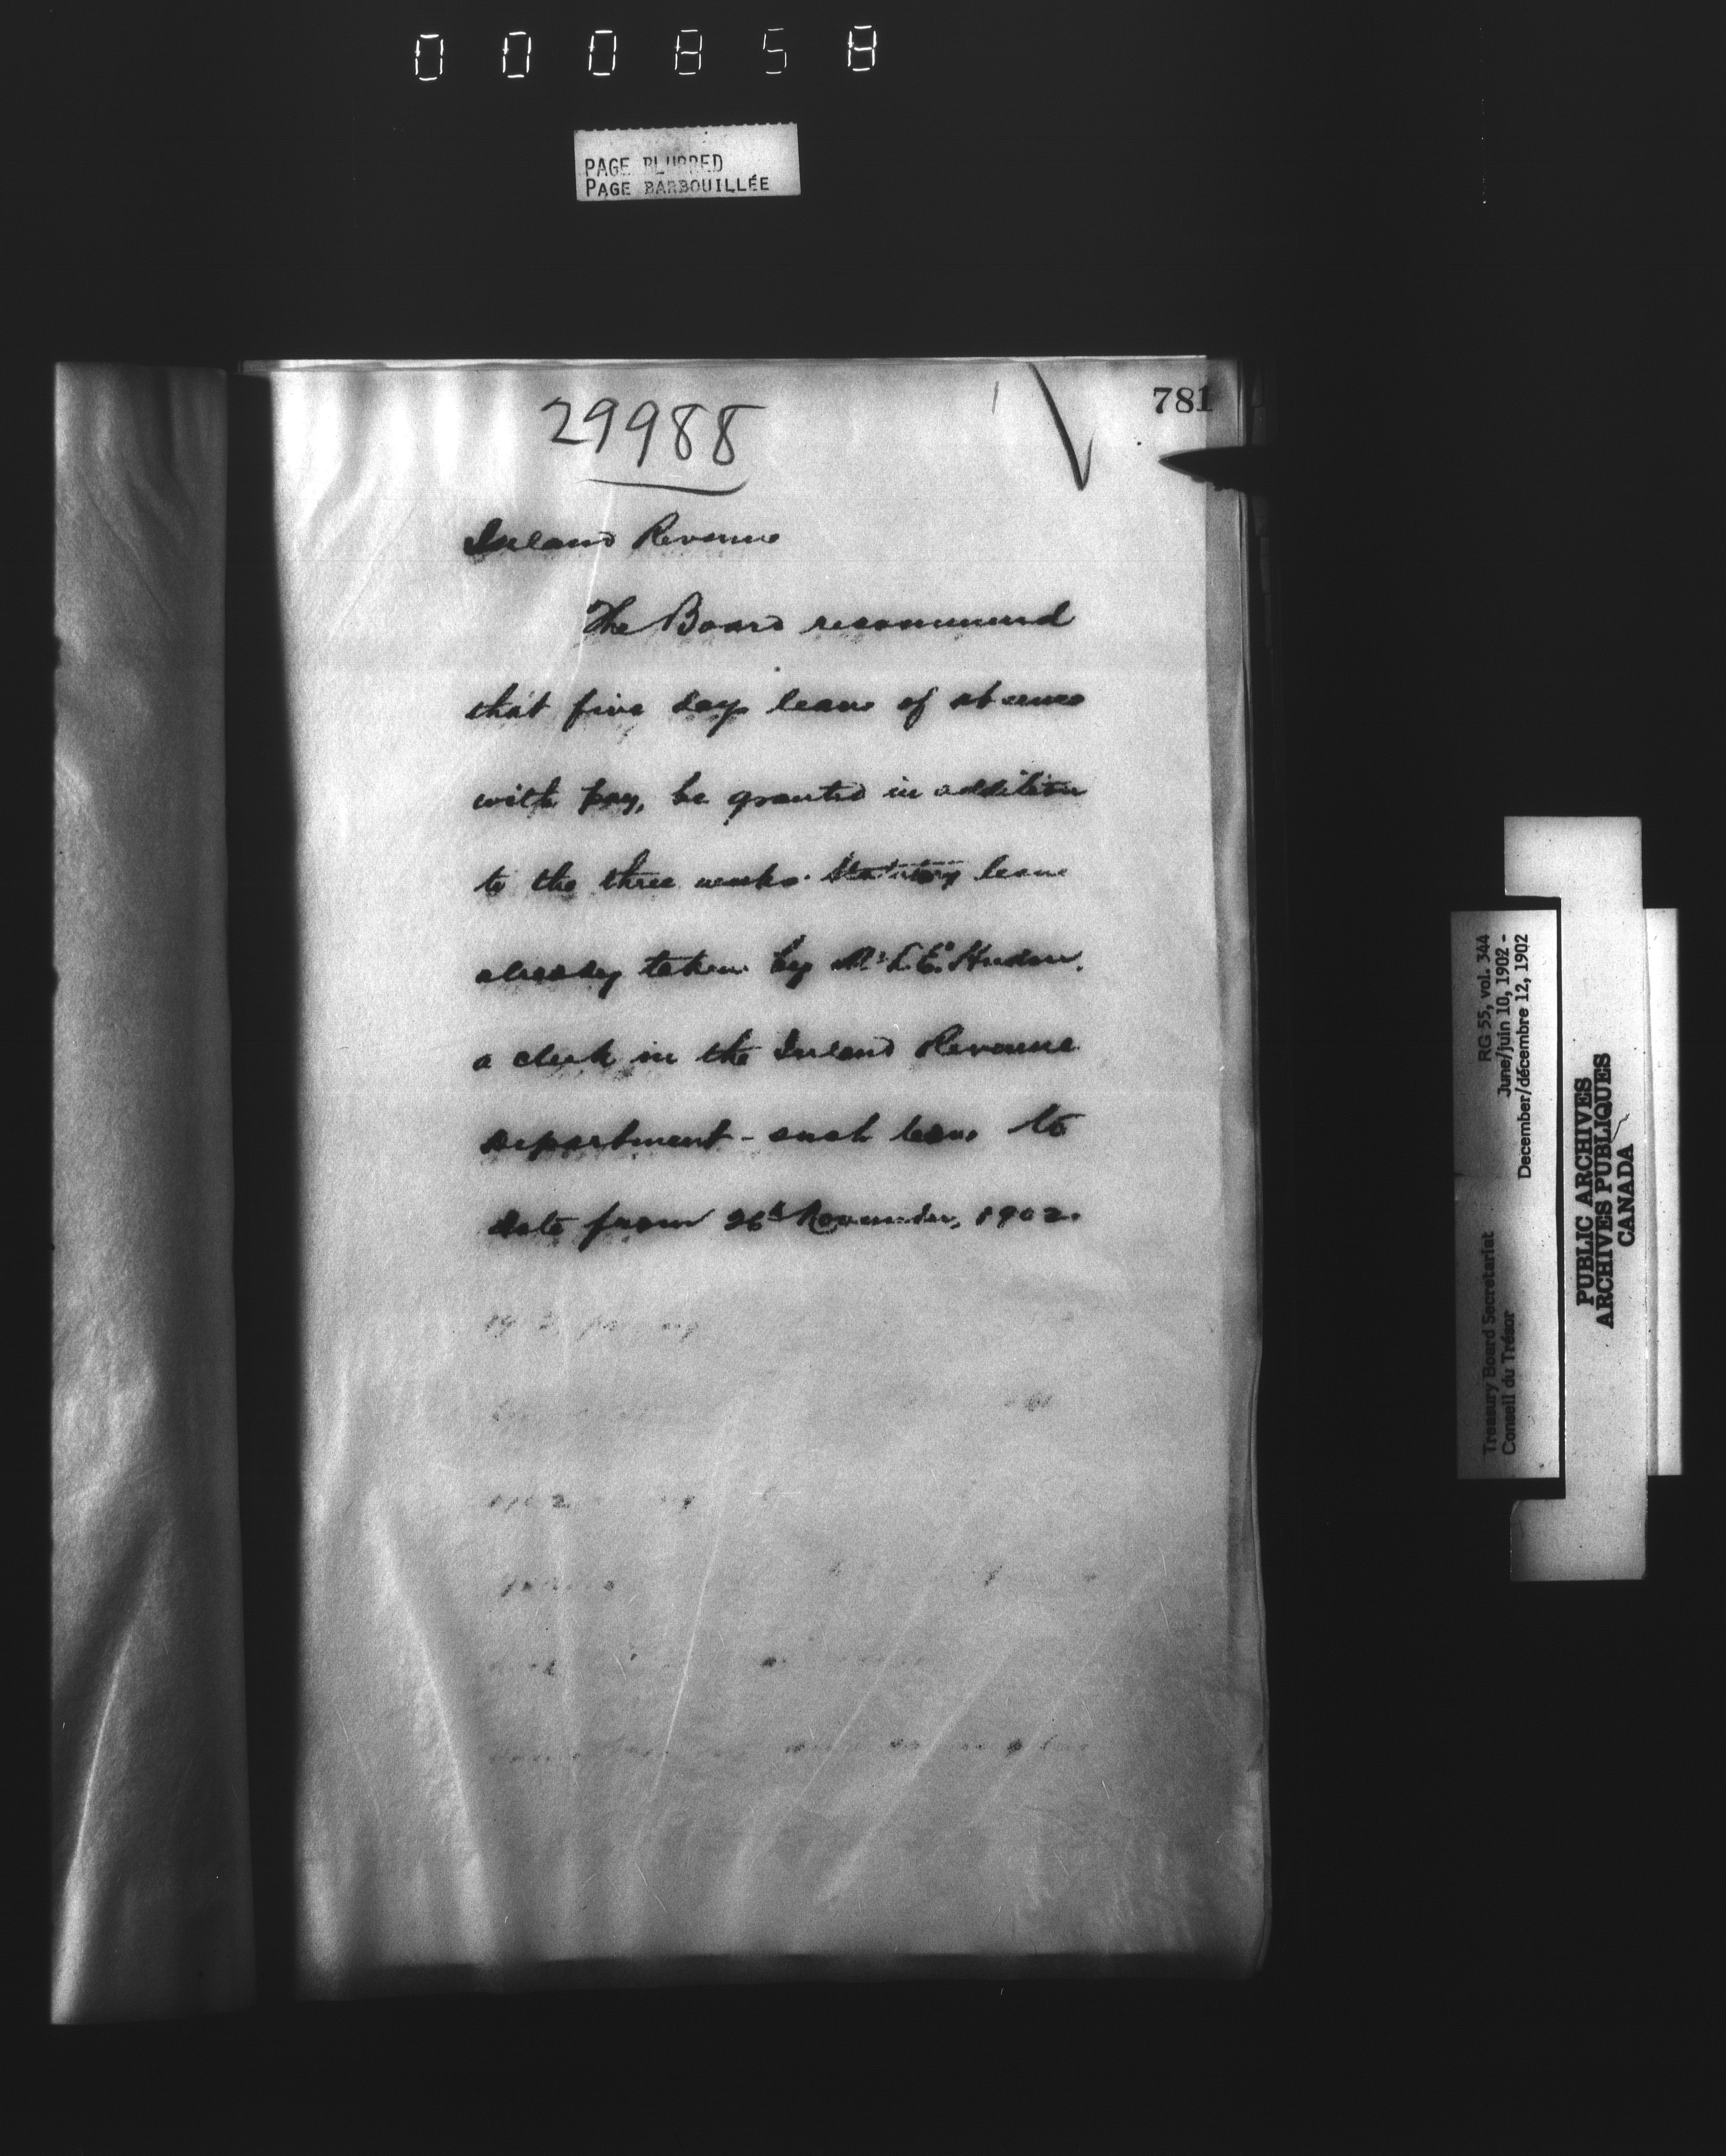 000858
PAGE BLURRED
PAGE BARBOUILLÉE
781
29988
Inland Revenue
The Board recommend
that five days leave of absence
with pay, be granted in addition
to the three weeks statutory leave
already taken by Mr L. E. Hudon,
a clerk in the Inland Revenue
Department - such leave to
date from 26th November, 1902.
Treasury Board Secretariat RG 55, vol. 344
Conseil du Trésor June/juin 10, 1902 -
December/décembre 12, 1902
PUBLIC ARCHIVES
ARCHIVES PUBLIQUES
CANADA